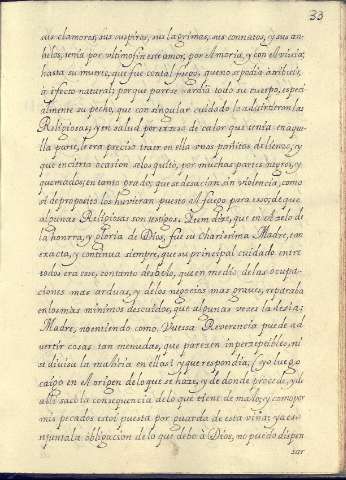 33
sus clamores, sus suspiros, sus lagrimas, sus connatos, y sus an-
helos, tenia por vltimo fin este amor, por Amoria, y con el viuia;
hasta su muerte, que fue con tal fuego, que no se podia atribuir
à efecto natural; porque parese àrdia todo su cuerpo, especi
almente su pecho, que con singular cuidado la aduirtieron las
Religiosas, y en salud por exceso de calor que tenia en aque-
lla parte, le era preciso traer en ella vnos pañitos de lienzo, y
que en cierta ocasion se los quitò, por muchas partes negros, y
quemados, en tanto grado; que se desacian sin violencia, como
si de proposito los huvieran puesto àl fuego para esso; de que
algunas Religiosas son testigos. Ytem dixe, que en el zelo de
la honrra, y gloria de Dios, fue su Charissima Madre, tan
exacta, y continua siempre, que su principal cuidado entre
todo era esse, con tanto desvelo, que en medio de las ocupa-
ciones mas arduas, y de los negocios mas graves, reparaba
en los mas minimos descuidos, que algunas vezes la desia:
Madre, no entiendo como Vuessa Reverencia puede ad
vertir cosas tan menudas, que paresen inperzeptibles, ni
se divisa la malicia en ellas? y que respondia; (yo luego
caigo en el origen de lo que se haze, y de donde procede, y de
alli saco la consequencia de lo que tiene de malo; y como por
mis pecados estoi puesta por guarda de esta viña; ya es-
njunta la obligacion de lo que debo à Dios, no puedo dispen
sar